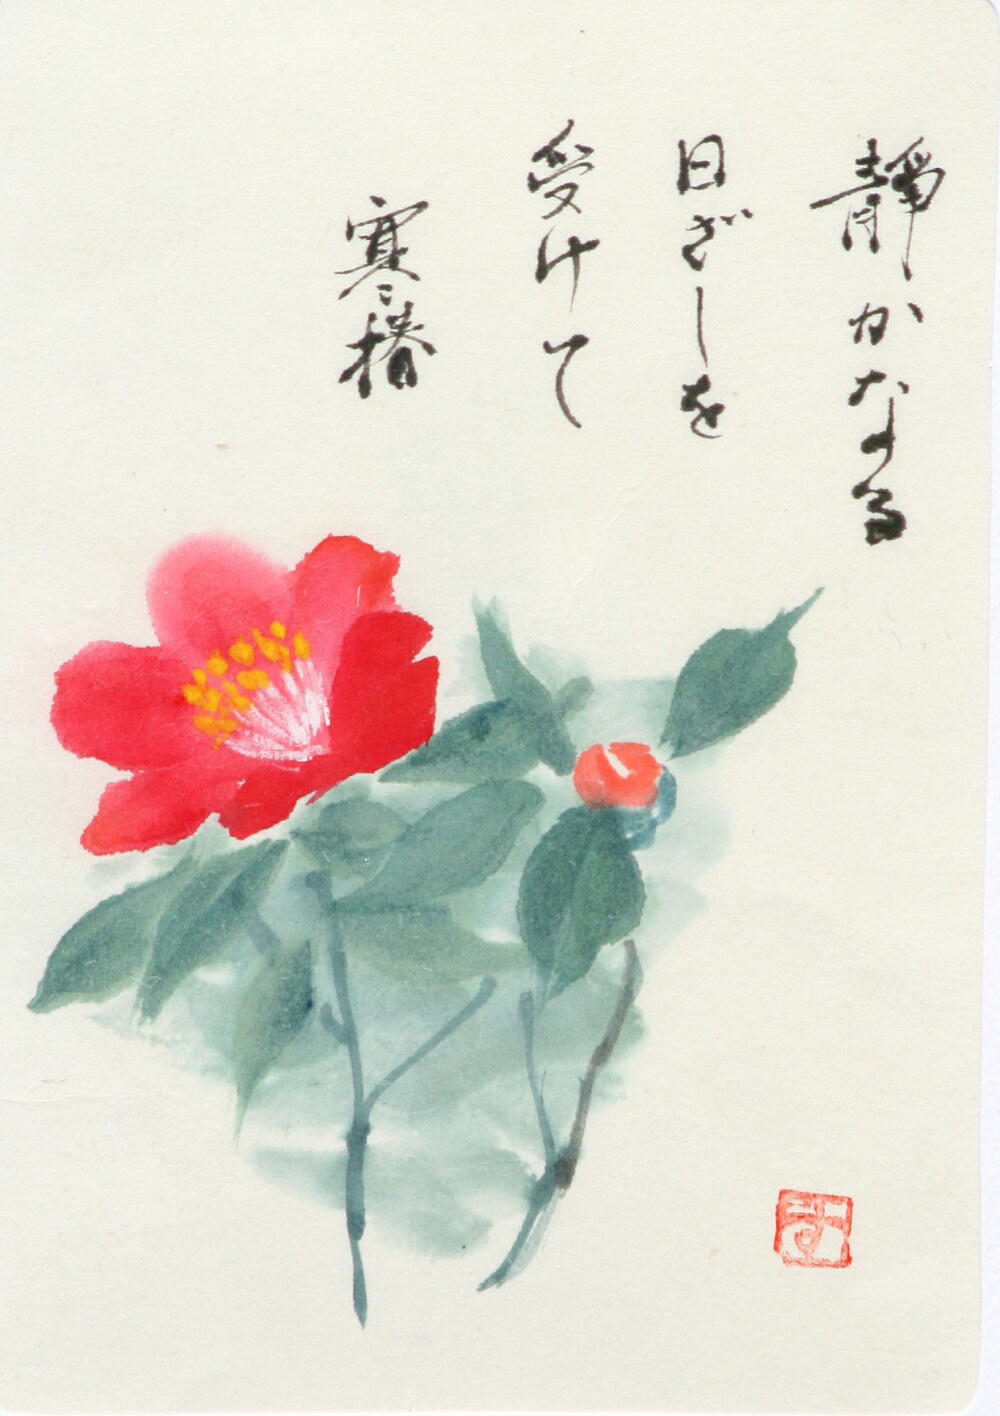 静かなる
日ざしを
受けて
寒椿